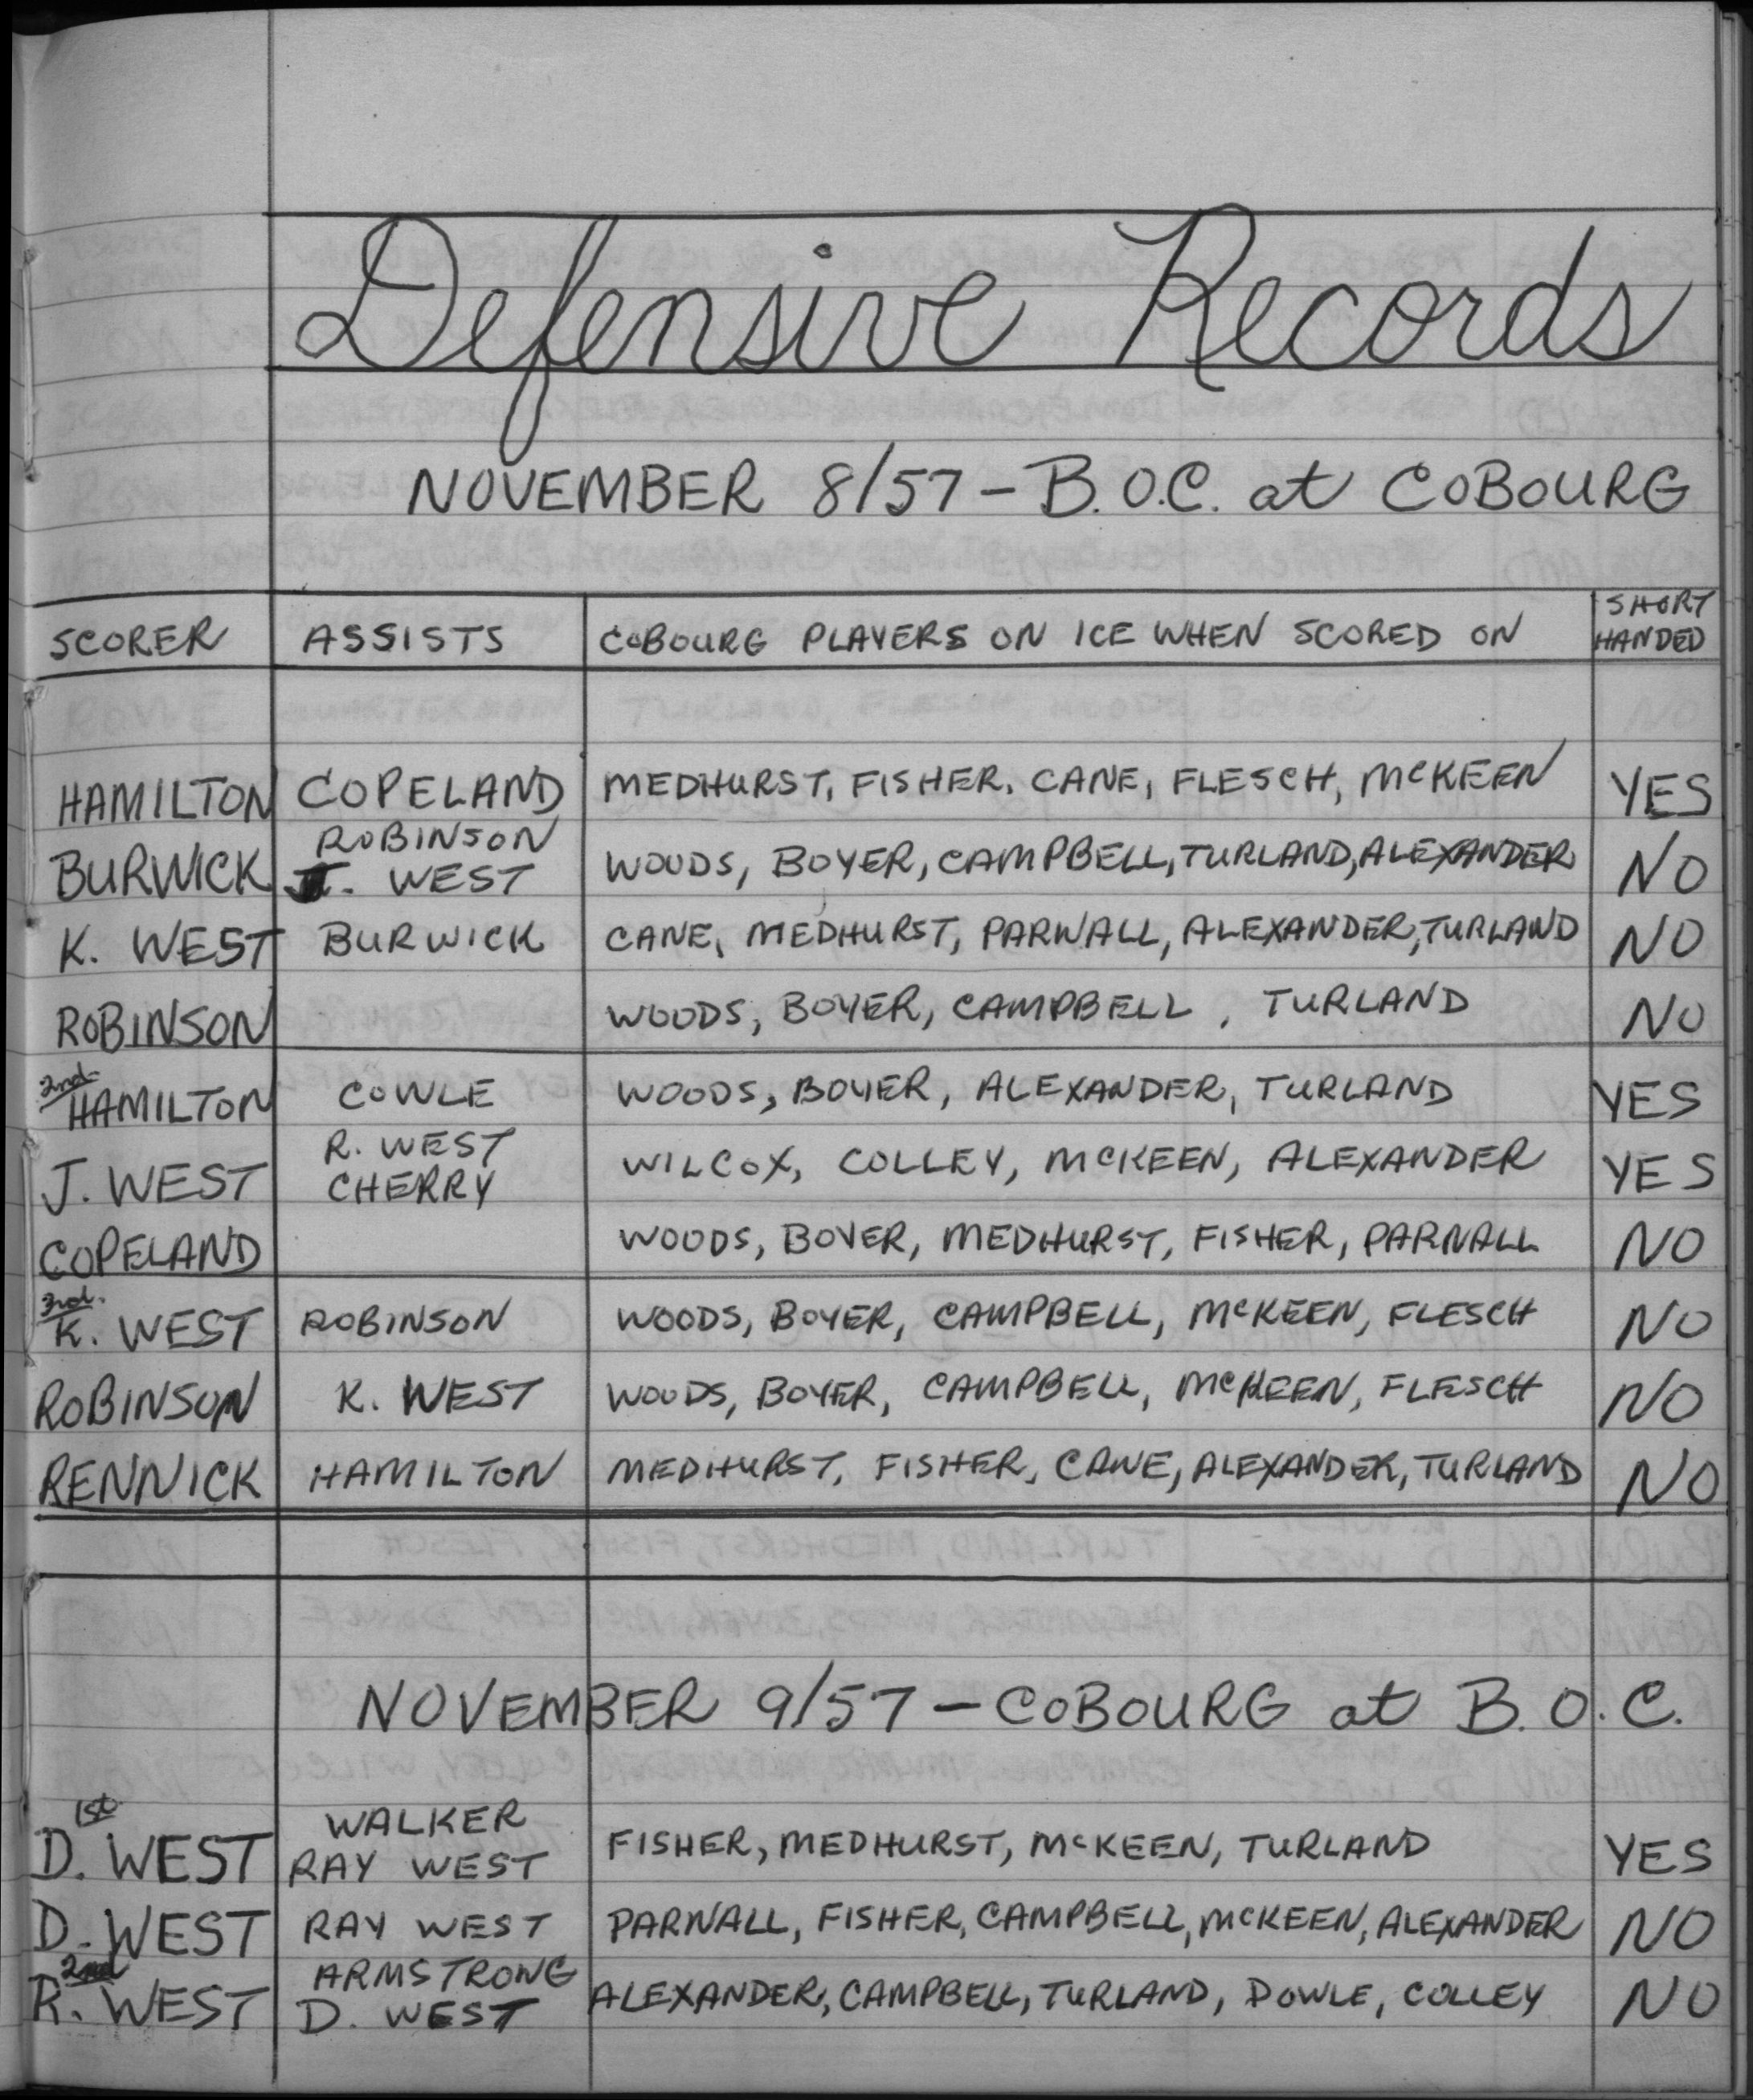 Defensive Records
NOVEMBER 8/57 - B.O.C. at COBOURG
SCORER ASSISTS COBOURG PLAYERS ON ICE WHEN SCORED ON SHORT HANDED
HAMILTON COPELAND MEDHURST, FISHER, CANE, FLESCH, McKEEN YES
ROBINSON
BURWICK J. WEST WOODS, BOYER, CAMPBELL, TURLAND, ALEXANDER NO
K. WEST BURWICK CANE, MEDHURST, PARNALL, ALEXANDER, TURLAND NO
ROBINSON WOODS, BOYER, CAMPBELL, TURLAND NO
2nd
HAMILTON COWLE WOODS, BOYER, ALEXANDER, TURLAND YES
R. WEST
J. WEST CHERRY WILCOX, COLLEY, McKEEN, ALEXANDER YES
COPELAND WOODS, BOYER, MEDHURST, FISHER, PARNALL NO
3rd.
K. WEST ROBINSON WOODS, BOYER, CAMPBELL, McKEEN, FLESCH NO
ROBINSON K. WEST WOODS, BOYER, CAMPBELL, McKEEN, FLESCH NO
RENNICK HAMILTON MEDHURST, FISHER, CANE, ALEXANDER, TURLAND NO
NOVEMBER 9/57 - COBOURG at B.O.C.
1st
WALKER
D. WEST RAY WEST FISHER, MEDHURST, McKEEN, TURLAND YES
D. WEST RAY WEST PARNALL, FISHER, CAMPBELL, McKEEN, ALEXANDER NO
2nd
ARMSTRONG
R. WEST D. WEST ALEXANDER, CAMPBELL, TURLAND, DOWLE, COLLEY NO